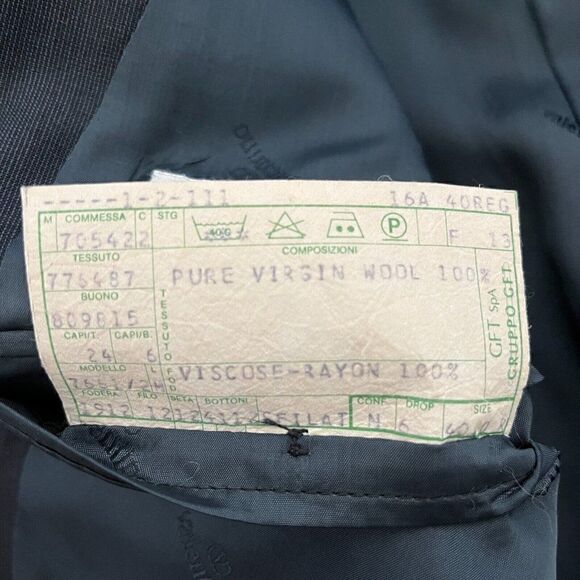 -----1-2-111 16A 40REG
M COMMESSA C STG 40°C P F 13
705422
TESSUTO COMPOSIZIONI
776487 PURE VIRGIN WOOL 100%
BUONO
809815
TESSUTO
GFT SpA
GRUPPO GFT
CAPI/T. CAPI/B.
24 6
MODELLO FOD VISCOSE-RAYON 100%
FODERA FILO SETA BOTTONI CONF. DROP SIZE
N 6